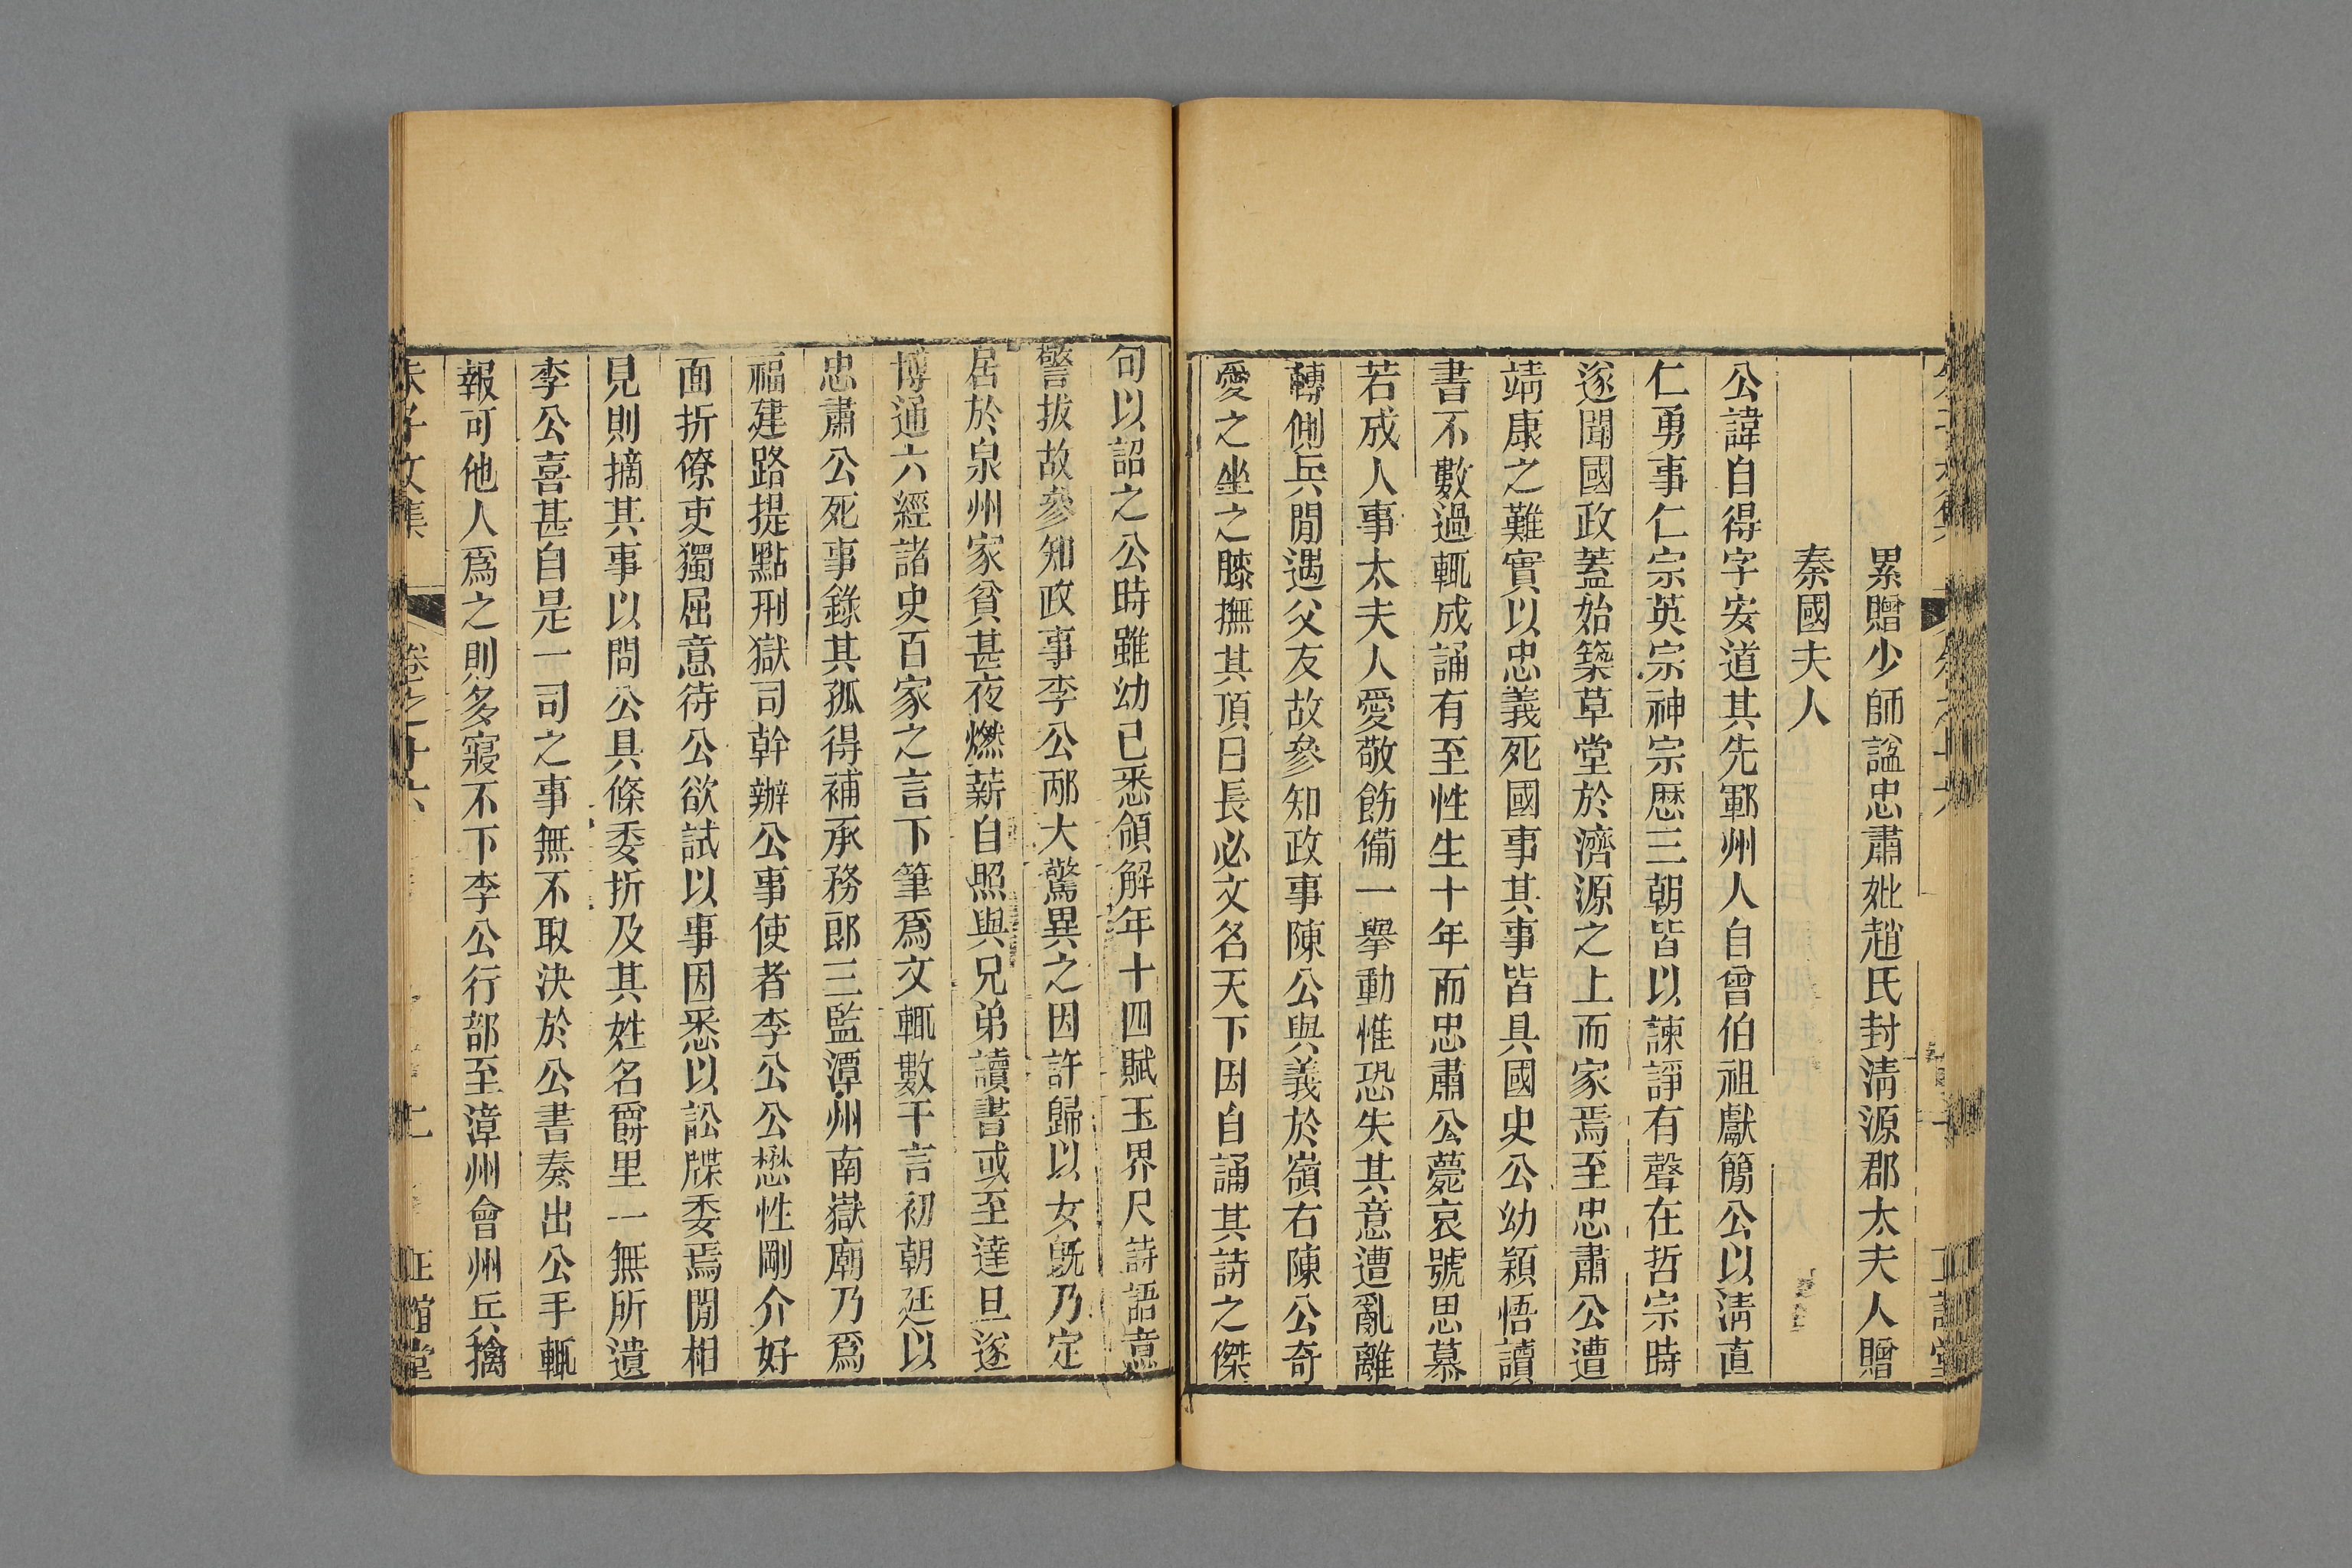 累贈少師諡忠肅妣趙氏封淸源郡太夫人贈
秦國夫人
公諱自得字安道其先鄆州人自曾伯祖獻簡公以淸直
仁勇事仁宗英宗神宗歷三朝皆以諫諍有聲在哲宗時
遂聞國政蓋始築草堂於濟源之上而家焉至忠肅公遭
靖康之難實以忠義死國事其事皆具國史公幼穎悟讀
書不數過輒成誦有至性生十年而忠肅公薨哀號思慕
若成人事太夫人愛敬飭備一舉動惟恐失其意遭亂離
轉側兵閒遇父友故參知政事陳公與義於嶺右陳公奇
愛之坐之膝撫其頂曰長必文名天下因自誦其詩之傑
句以詔之公時雖幼已悉領解年十四賦玉界尺詩語意
警拔故參知政事李公邴大驚異之因許歸以女旣乃定
居於泉州家貧甚夜燃薪自照與兄弟讀書或至達旦遂
博通六經諸史百家之言下筆爲文輒數千言初朝廷以
忠肅公死事錄其孤得補承務郎三監潭州南嶽廟乃爲
福建路提點刑獄司幹辦公事使者李公公懋性剛介好
面折僚吏獨屈意待公欲試以事因悉以訟牒委焉閒相
見則摘其事以問公具條委折及其姓名爵里一無所遺
李公喜甚自是一司之事無不取決於公書奏出公手輒
報可他人爲之則多寢不下李公行部至漳州會州兵擒
朱子文集 卷之十六 正誼堂